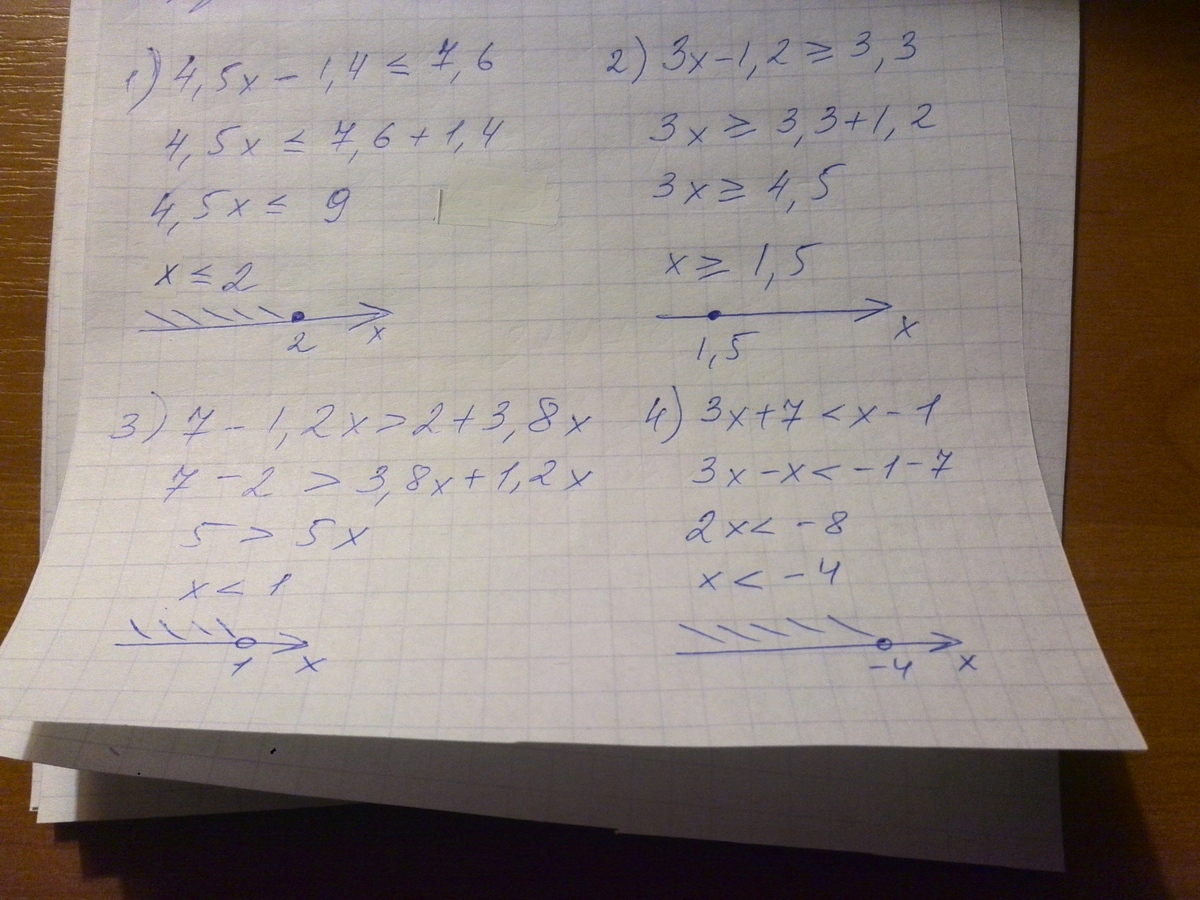 1) 4,5x - 1,4 ≤ 7,6
4,5x ≤ 7,6 + 1,4
4,5x ≤ 9
x ≤ 2
2
x
2) 3x - 1,2 ≥ 3,3
3x ≥ 3,3 + 1,2
3x ≥ 4,5
x ≥ 1,5
1,5
x
3) 7 - 1,2x > 2 + 3,8x
7 - 2 > 3,8x + 1,2x
5 > 5x
x < 1
1
x
4) 3x + 7 < x - 1
3x - x < -1 - 7
2x < -8
x < -4
-4
x